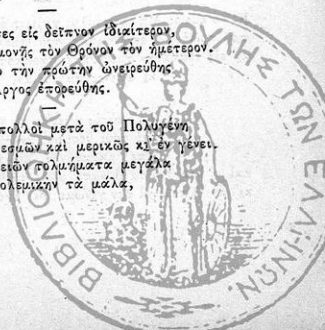 ες εἰς δεῖπνον ἰδιαίτερον,
μονῆς τὸν Θρόνον τὸν ἡμέτερον.
τὴν πρώτην ὠνειρεύθης
ργος ἐπορεύθης.
πολλοὶ μετὰ τοῦ Πολυγένη
εσμῶν καὶ μερικῶς κι' ἐν γένει.
ειῶν τολμήματα μεγάλα
ολεμικὴν τὰ μάλα,
ΒΙΒΛΙΟΘΗΚΗ ΤΗΣ ΒΟΥΛΗΣ ΤΩΝ ΕΛΛΗΝΩΝ